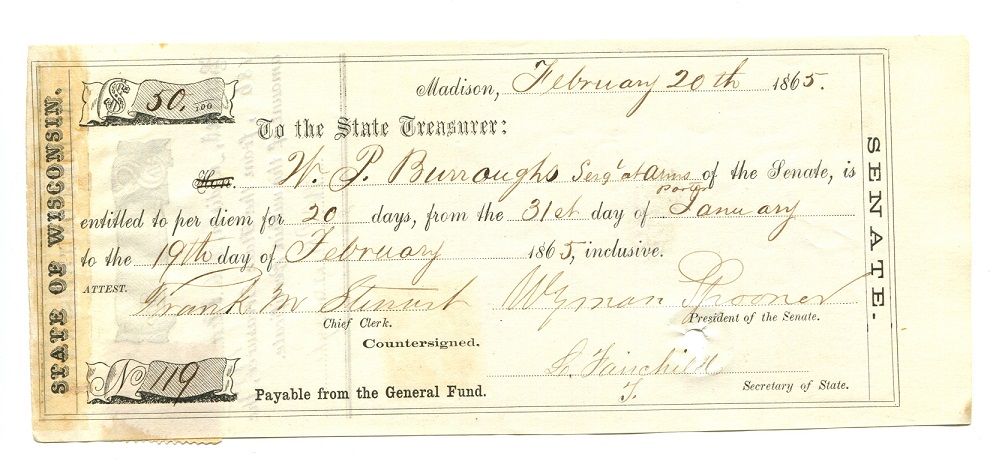 STATE OF WISCONSIN.
$ 50,100
Madison, February 20th 1865.
To the State Treasurer:
Hon. W. P. Burroughs Serg't at Arms of the Senate, is
entitled to per diem for 20 days, from the 31st day of January
to the 19th day of February 1865, inclusive.
ATTEST. Frank M Stewart Wyman Spooner
Chief Clerk. President of the Senate.
Countersigned.
L. Fairchild
Secretary of State.
No 119
Payable from the General Fund.
SENATE.